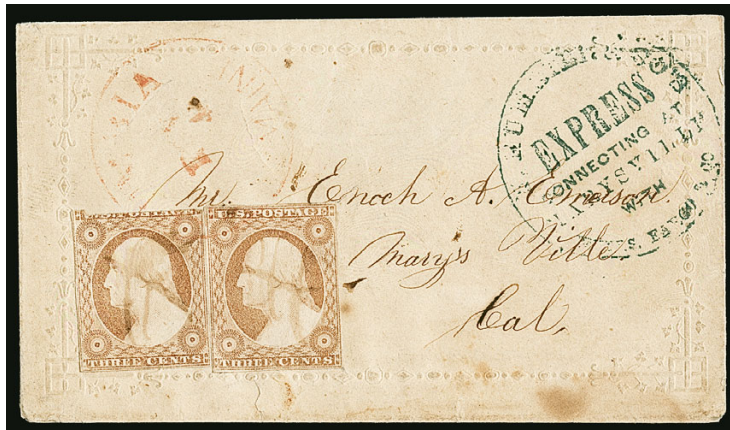 EXPRESS
CONNECTING AT
MARYSVILLE
WITH
S. FARGO & CO
Mr. Enoch A. Emerson.
Marys Ville
Cal,
U.S. POSTAGE
THREE CENTS
U.S. POSTAGE
THREE CENTS